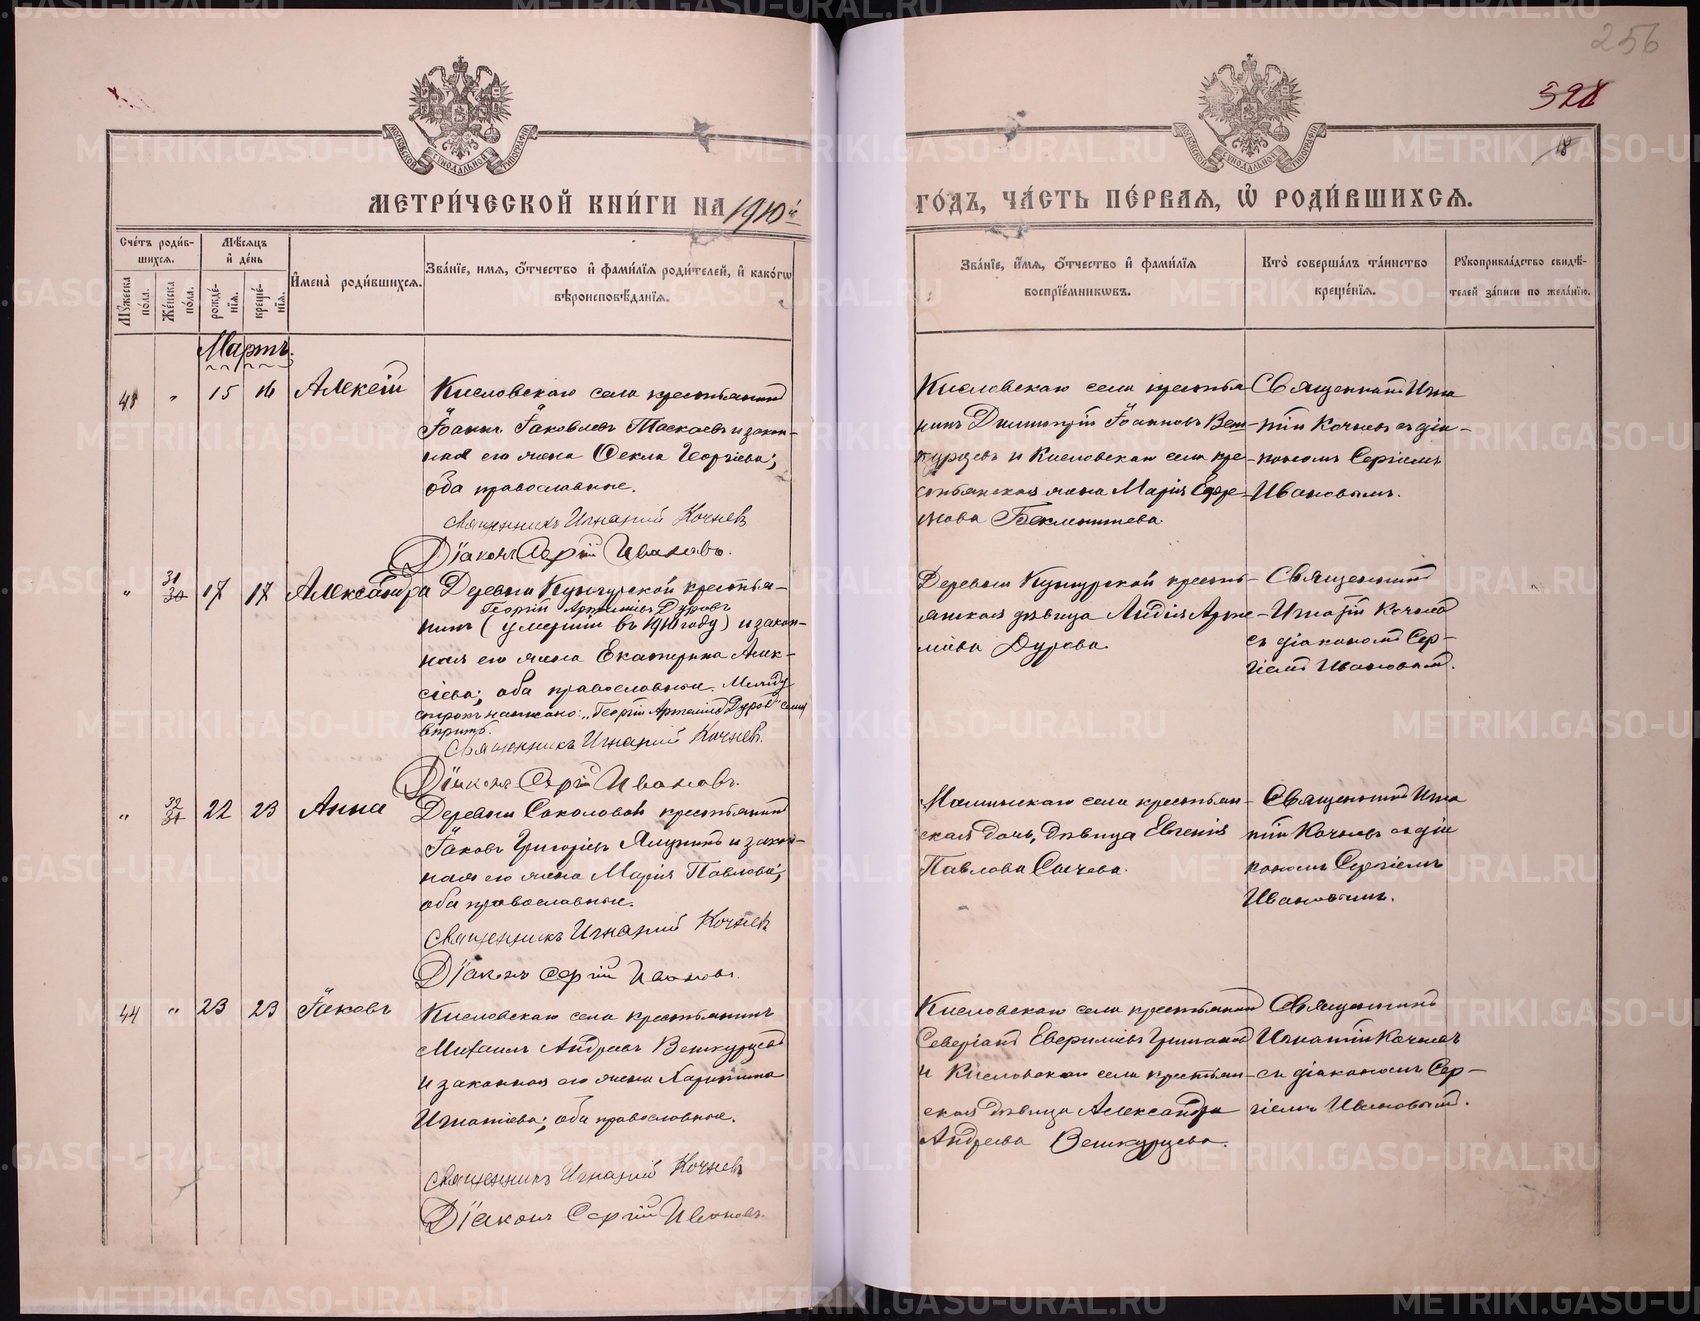 256
328
18
МЕТРИ́ЧЕСКОЙ КНИ́ГИ НА 1910й
ГО́ДЪ, ЧА́СТЬ ПЕ́РВАЯ, Ѡ҆ РОДИ́ВШИХСЯ.
Сче́тъ роди́в-
шихся.
Мѣ́сяцъ
и҆ де́нь
Му́жеска по́ла.
Же́нска по́ла.
рожде́-
нїя.
креще́-
нїя.
И҆мена̀ роди́вшихся.
Зва́нїе, имя, ѻ҆́тчество и҆ фами́лїя роди́телей, и҆ како́гѡ
вѣ̀роисповѣ́данїя.
Зва́нїе, и҆́мя, ѻ҆́тчество и҆ фами́лїя
воспрїе́мникѡвъ.
Кто̀ соверша́лъ та́инство
креще́нїя.
Рꙋкоприкла́дство свидѣ́-
телей за́писи по жела́нїю.
Мартъ.
" 15 16 Алексѣй
Кисловскаго села крестьянинъ
Іоаннъ Іаковлевъ Таскаевъ и закон-
ная его жена Ѳекла Георгіева;
оба православные.
Священникъ Игнатій Кочневъ
Діаконъ Сергій Ивановъ.
Кисловскаго села крестья-
нинъ Димитрій Іоанновъ Веш-
курцевъ и Кисловскаго села кре-
стьянская жена Марія
Бекленищева
Священникъ Игна-
тій Кочневъ съ діа-
кономъ Сергіемъ
Ивановымъ.
" 31 30 17 17 Александра
Деревни Кунгурской крестья-
Георгій Артеміевъ Дуровъ
нинъ (умершій въ 1910 году) и закон-
ная его жена Екатерина Алек-
сіева; оба православные. Между
строкъ написано: „Георгій Артеміевъ Дуровъ"
Священникъ Игнатій Кочневъ.
Діаконъ Сергій Ивановъ.
Деревни Кунгурской кресть-
янская дѣвица Лидія Арте-
міева Дурова.
Священникъ
Игнатій Кочневъ
съ діакономъ Сер-
гіемъ Ивановымъ.
" 32 31 22 23 Анна
Деревни Соколовой крестьянинъ
Іаковъ Григоріевъ Ялунинъ и закон-
ная его жена Марія Павлова;
оба православные.
Священникъ Игнатій Кочневъ
Діаконъ Сергій Ивановъ.
Маминскаго села крестьян-
ская дочь, дѣвица Евгенія
Павлова Сычева.
Священникъ Игна
тій Кочневъ съ діа
кономъ Сергіемъ
Ивановымъ.
44 " 23 23 Іаковъ
Кисловскаго села крестьянинъ
Михаилъ Андреевъ Вешкурцевъ
и законная его жена Харитина
Игнатіева; оба православные.
Священникъ Игнатій Кочневъ
Діаконъ Сергій Ивановъ.
Кисловскаго села крестьянинъ
Северіанъ
и Кисловскаго села крестьян-
ская дѣвица Александра
Андреева Вешкурцева.
Священникъ
Игнатій Кочневъ
съ діакономъ Сер-
гіемъ Ивановымъ.
METRIKI.GASO-URAL.RU